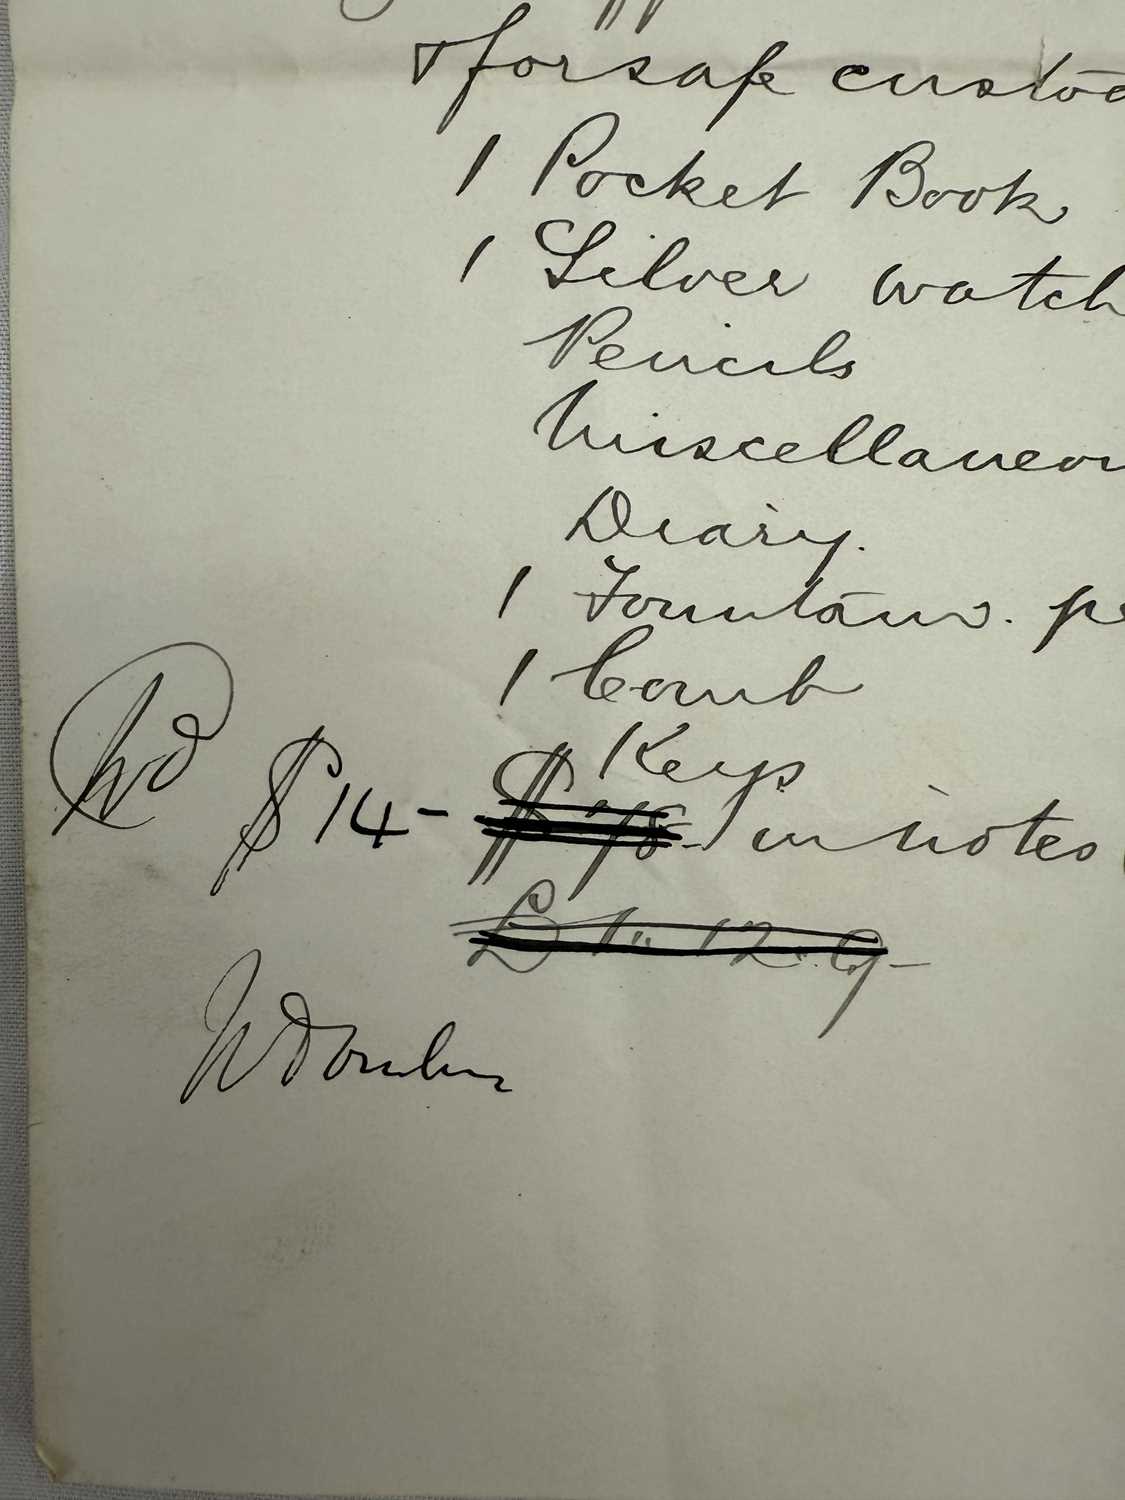 & for safe custod
1 Pocket Book
1 Silver watch
Pencils
Miscellaneou
Diary.
1 Fountain. pe
1 Comb
Keys
WD $14 - $78 - in notes
£1 " 12. 9 -